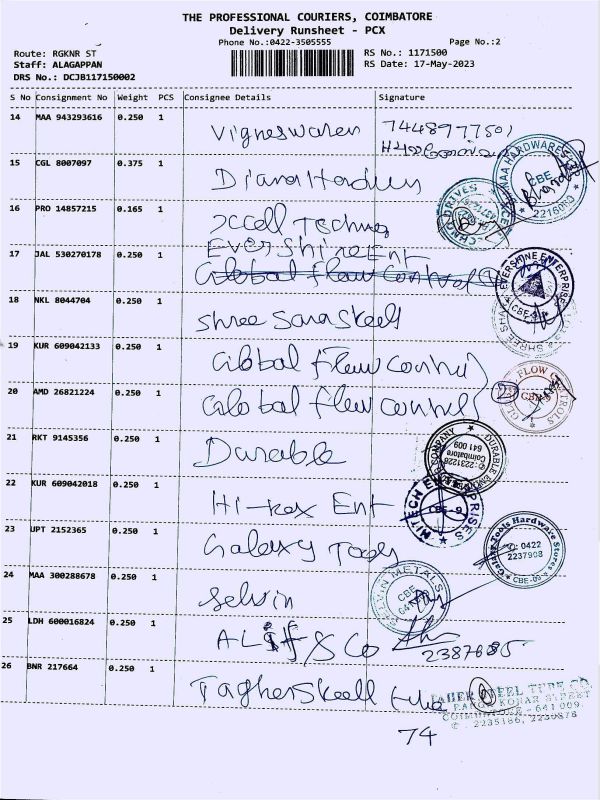 THE PROFESSIONAL COURIERS, COIMBATORE
Delivery Runsheet - PCX
Phone No.:0422-3505555 Page No.:2
Route: RGKNR ST RS No.: 1171500
Staff: ALAGAPPAN RS Date: 17-May-2023
DRS No.: DCJB117150002
S No Consignment No Weight PCS Consignee Details Signature
14 MAA 943293616 0.250 1 Vigneswaren 7448977501
15 CGL 8007097 0.375 1 Diana
HARDWARES
CBE
16 PRO 14857215 0.165 1 Xcell Techno
DRIVES
17 JAL 530270178 0.250 1 Evershine Ent
Global flow control
EVERSHINE ENTERPRISES
CBE-9
18 NKL 8044704 0.250 1 Shree Sara Steels
19 KUR 609042133 0.250 1 Global flow control
20 AMD 26821224 0.250 1 Global flow control
FLOW CONTROLS
CBE-9
21 RKT 9145356 0.250 1 Durable
DURABLE COMPANY
Coimbatore
641 009
✆: 2231228
22 KUR 609042018 0.250 1 Hi-tex Ent
HITECH ENTERPRISES
CBE-9
23 UPT 2152365 0.250 1 Galaxy Tools
Galaxy Tools Hardware Stores
✆: 0422
2237908
CBE-09
24 MAA 300288678 0.250 1 Selvin
SELVIN METALS
CBE
25 LDH 600016824 0.250 1 & Co
26 BNR 217664 0.250 1 tube
TAHER STEEL TUBE CO
COIMBATORE - 641 009
✆: 2235186, 2230878
74